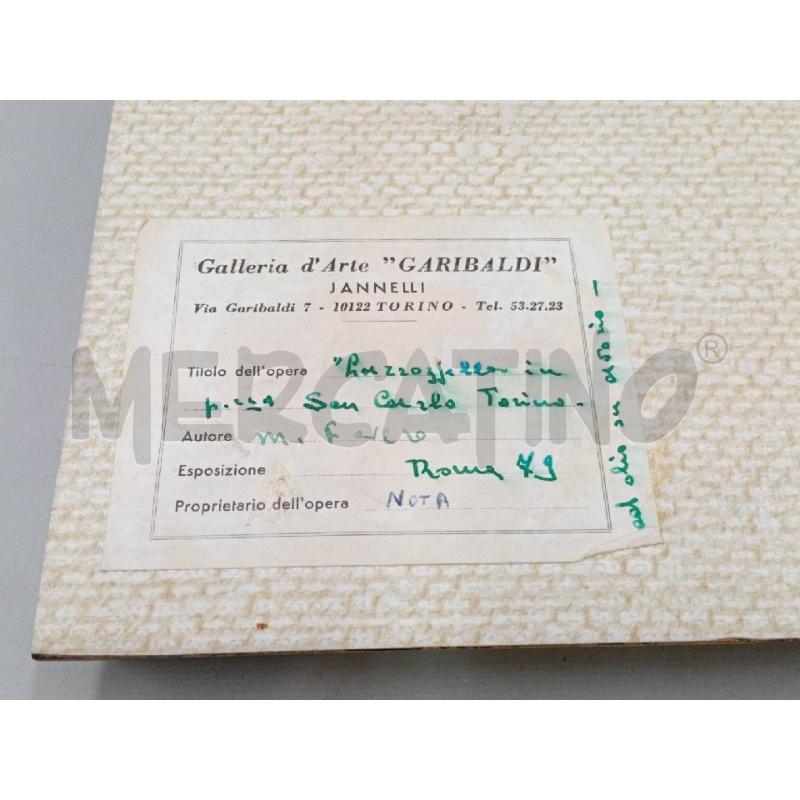 Galleria d'Arte "GARIBALDI"
JANNELLI
Via Garibaldi 7 - 10122 TORINO - Tel. 53.27.23
Titolo dell'opera in
p.zza San Carlo Torino -
Autore M.
Esposizione Roma 79
Proprietario dell'opera NOTA
ad olio su
MERCATINO®